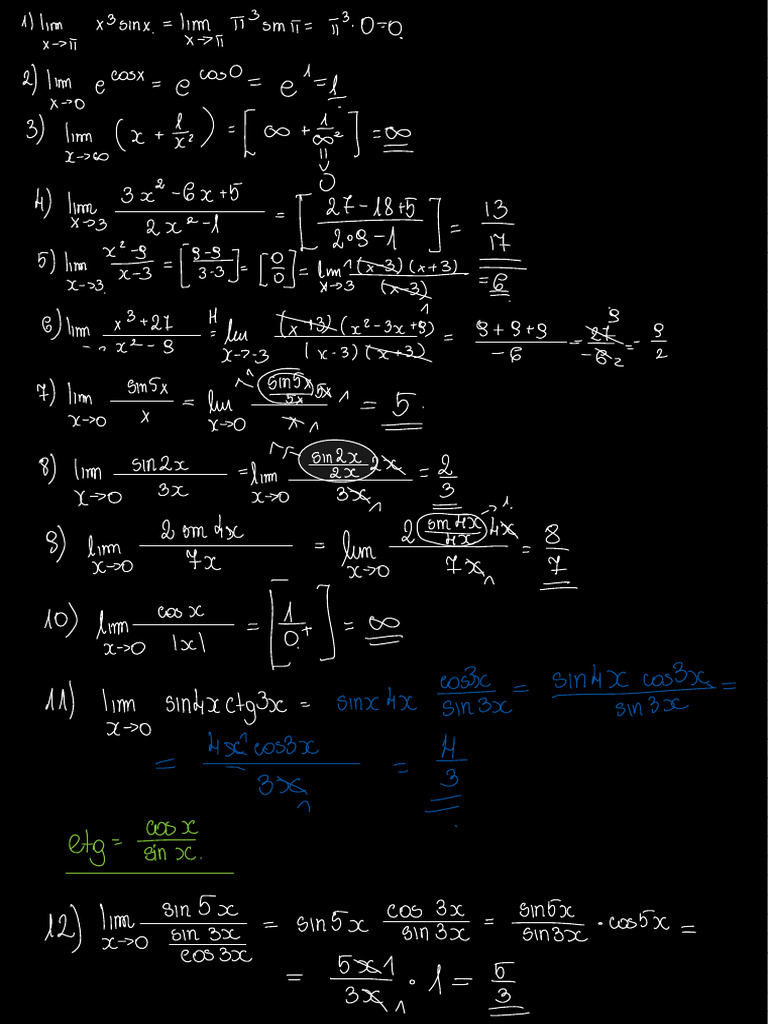 1) lim x→π x³sinx. = lim x→π π³ sin π = π³·0=0.
2) lim x→0 e^cosx = e^cos0 = e¹ = l
3) lim x→∞ (x + 1/x²) = [∞ + 1/∞²] = ∞
0
4) lim x→3 (3x²-6x+5)/(2x²-1) = [(27-18+5)/(2·9-1)] = 13/17
5) lim x→3. (x²-9)/(x-3) = [(9-9)/(3-3)] = [0/0] = lim x→3 1 (x-3)(x+3)/(x-3) 1 = 6
6) lim -3 (x³+27)/(x²-9) H= lim x→-3 (x+3)(x²-3x+9)/((x-3)(x+3)) = (9+9+9)/-6 = 27 9/-6 2 = -9/2
7) lim x→0 sin5x/x = lim x→0 1 (sin5x/5x) 5x 1/x 1 = 5.
8) lim x→0 sin2x/3x = lim x→0 1 (sin2x/2x) 2x/3x 1 = 2/3
9) lim x→0 2 sin 4x/7x = lim x→0 2 (sin 4x/4x) →1. 4x/7x 1 = 8/7
10) lim x→0 cos x/|x| = [1/0.+] = ∞
11) lim x→0 sin4x ctg3x = sinx 4x cos3x/sin3x = sin4x cos3x/sin3x =
= 4x 1 cos3x/3x 1 = 4/3
ctg = cosx/sin x.
12) lim x→0 sin 5x/(sin 3x/cos 3x) = sin5x cos 3x/sin 3x = sin5x/sin3x · cos5x =
= 5x 1/3x 1 · 1 = 5/3